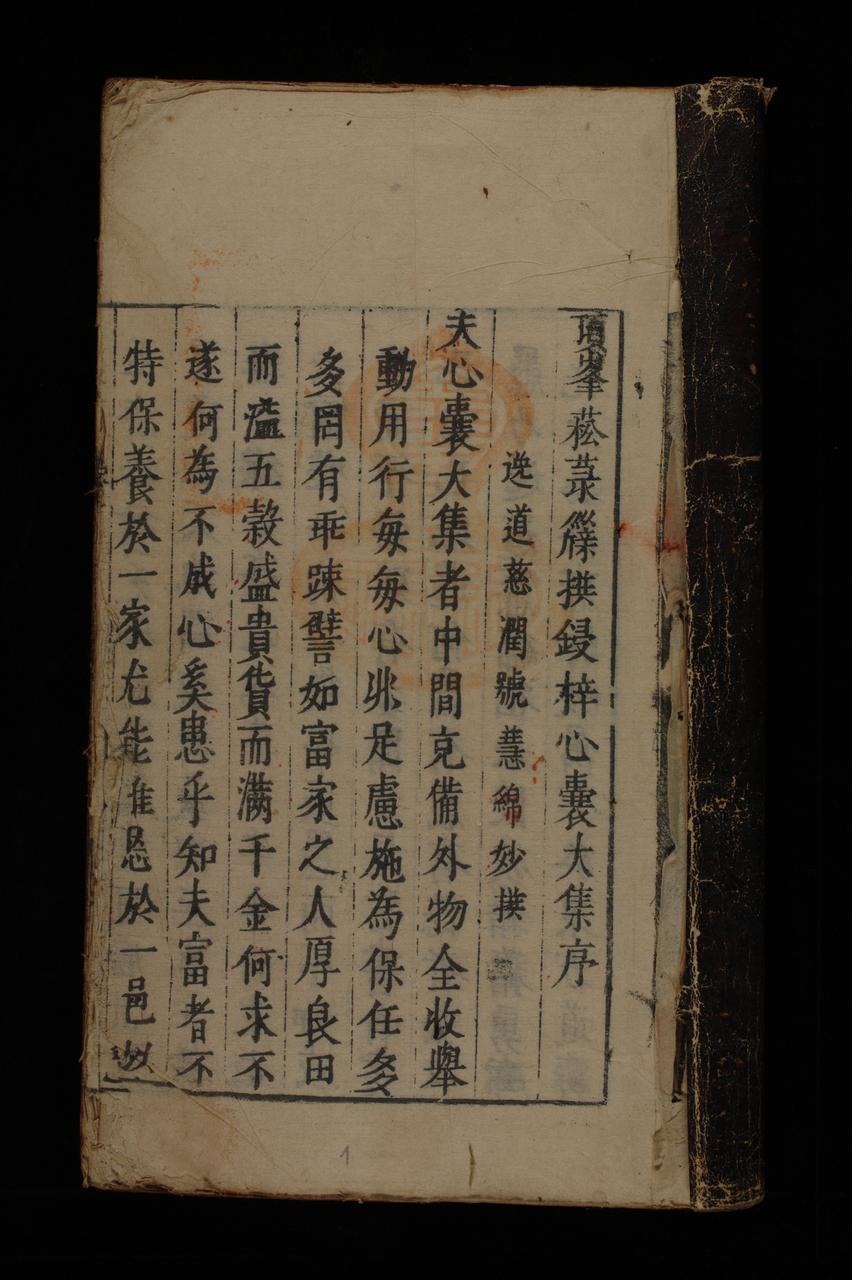 頂峯菘菉𥸷撰鋟梓心囊大集序
逸道慈潤號慧綿妙撰
夫心囊大集者中間克備外物全收舉
動用行每每心非足慮施為保任多
多罔有乖踈譬如富家之人厚良田
而溢五穀盛貴貨而滿千金何求不
遂何為不成心奚患乎知夫富者不
特保養於一家尤能推恩於一邑
1